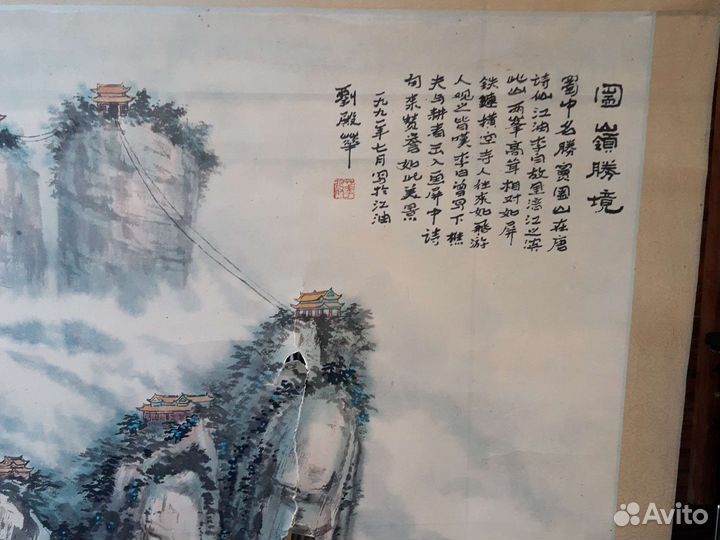 圌嶺勝境
蜀中名勝竇圌山在唐
詩仙江油李白故里涪江之濱
此山两峯高聳相对如屏
鉄鏈橫空寺人往來如飛游
人观之皆嘆李白曾写下樵
夫与耕者出入画屏中詩
句来赞譽如此美景
一九九一年七月写於江油
劉殿華
Avito